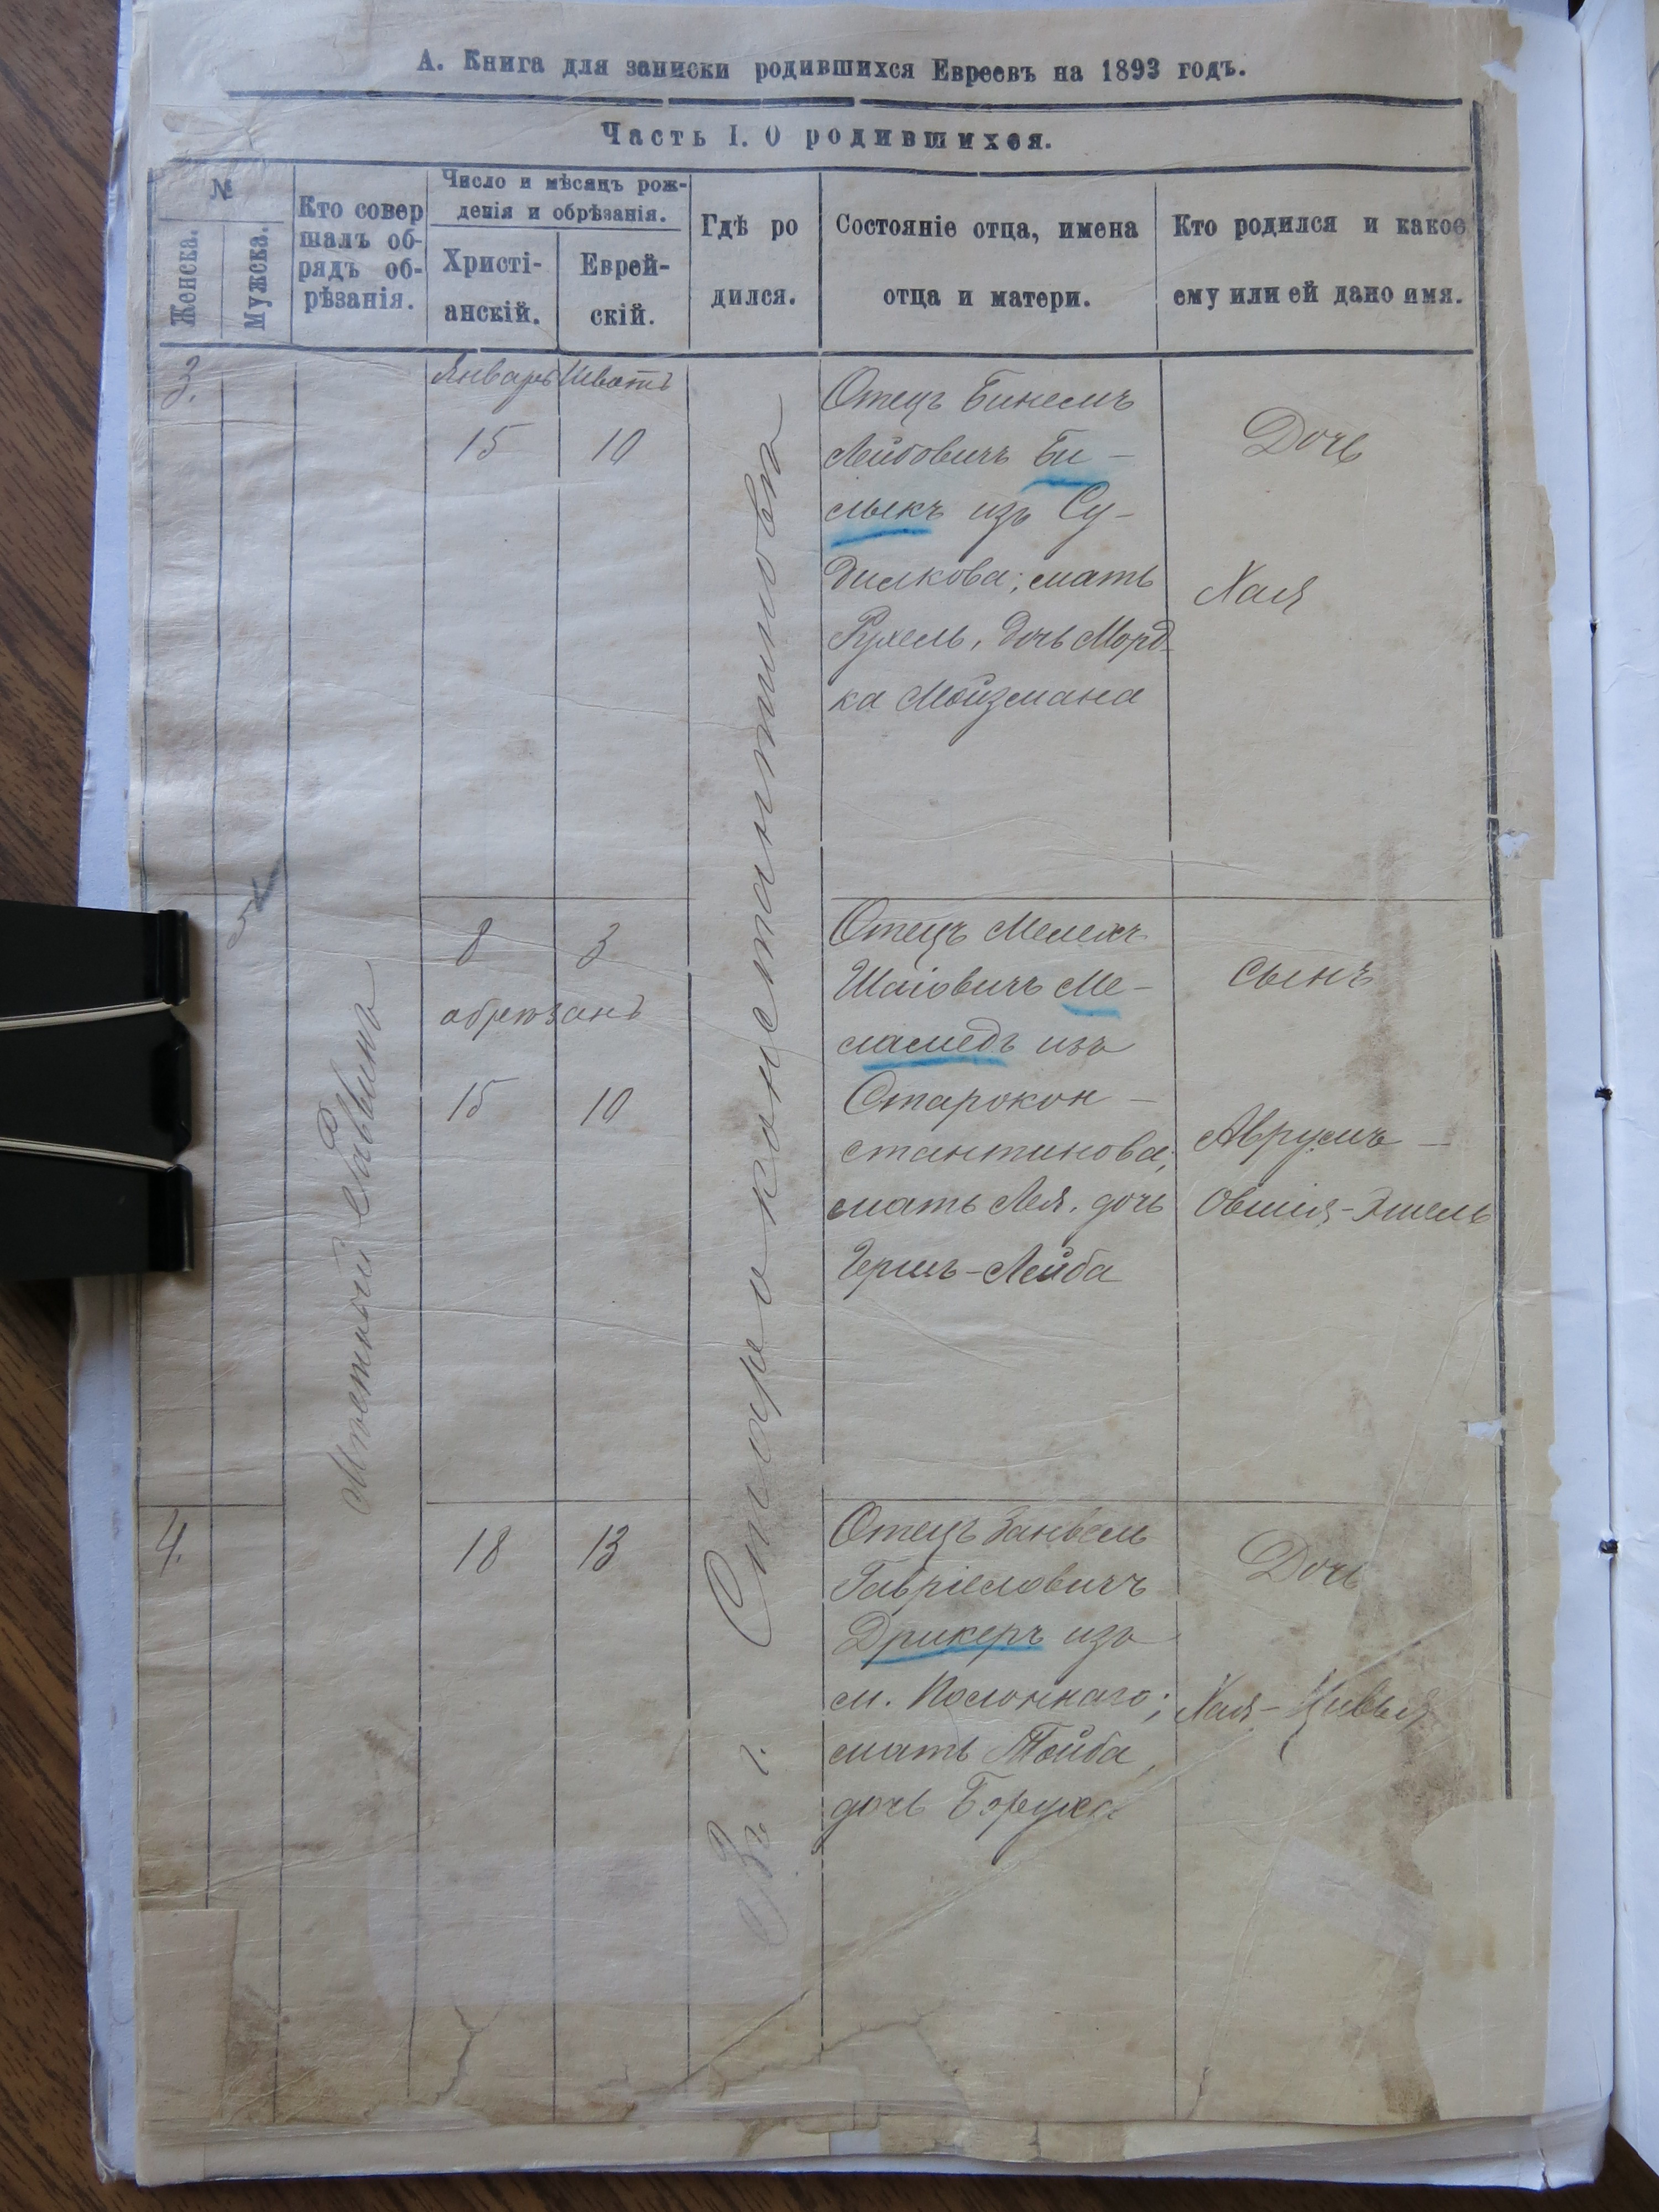 А. Книга для записки родившихся Евреевъ на 1893 годъ.
Часть I. О родившихся.
№
Женска.
Мужска.
Кто совер
шалъ об-
рядъ об-
рѣзанія.
Число и мѣсяцъ рож-
денія и обрѣзанія.
Христі-
анскій.
Еврей-
скій.
Гдѣ ро
дился.
Состояніе отца, имена
отца и матери.
Кто родился и какое
ему или ей дано имя.
3.
Январь Шватъ
15 10
Отецъ Бинемъ
Лейбовичъ Би-
лыкъ изъ Су-
дилкова; мать
Рухель, дочь Морд-
ка Мойзмана
Дочь
Хая
5
Мѣстный Раввинъ
8 3
обрѣзанъ
15 10
Въ г. Староконстантиновѣ
Отецъ Мелехъ
Шаіовичъ Ме-
ламедъ изъ
Старокон-
стантинова;
мать Лея, дочь
Гершъ-Лейба
Сынъ
Аврумъ-
Овшія-Эмель
4.
18 13
Отецъ Занвель
Гавріеловичъ
Дрикеръ изъ
м. Полоннаго;
мать Тойба,
дочь Боруха
Дочь
Хая-Цивья